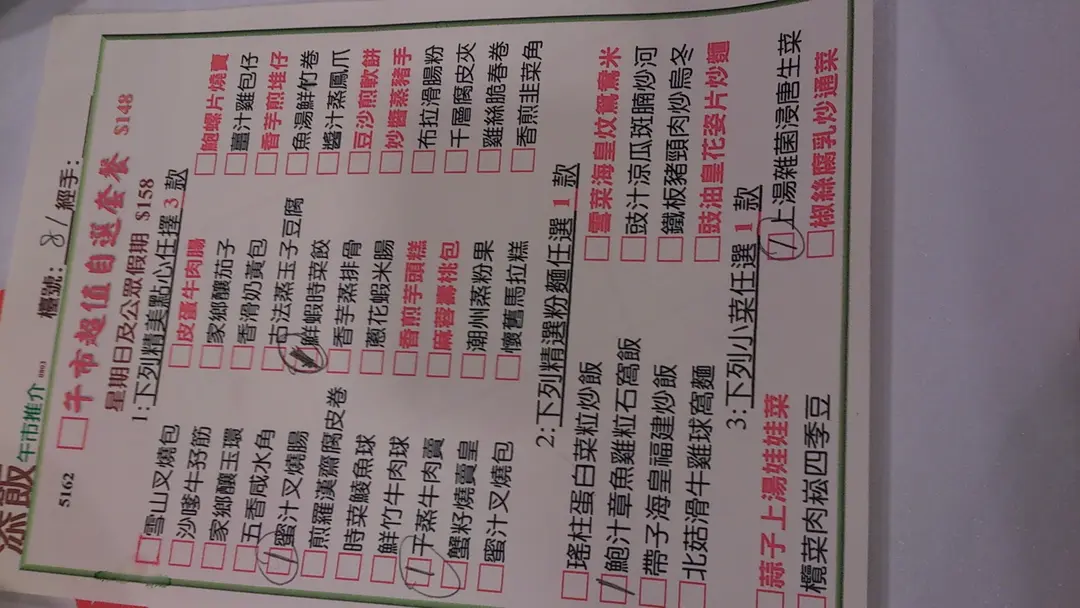 添飯
午市推介 0803
5162 檯號：81 經手：
午市超值自選套餐 $148
星期日及公眾假期 $158
1：下列精美點心任擇 3 款
雪山叉燒包 皮蛋牛肉腸 鮑螺片燒賣
沙嗲牛孖筋 家鄉釀茄子 薑汁雞包仔
家鄉釀玉環 香滑奶黃包 香芋煎堆仔
五香咸水角 古法蒸玉子豆腐 魚湯鮮竹卷
蜜汁叉燒腸 鮮蝦時菜餃 醬汁蒸鳳爪
煎羅漢齋腐皮卷 香芋蒸排骨 豆沙煎軟餅
時菜鯪魚球 蔥花蝦米腸 妙醬蒸豬手
鮮竹牛肉球 香煎芋頭糕 布拉滑腸粉
干蒸牛肉賣 麻蓉壽桃包 千層腐皮夾
蟹籽燒賣皇 潮州蒸粉果 雞絲脆春卷
蜜汁叉燒包 懷舊馬拉糕 香煎韭菜角
2：下列精選粉麵任選 1 款
瑤柱蛋白菜粒炒飯 雪菜海皇炆鴛鴦米
鮑汁章魚雞粒石窩飯 豉汁涼瓜斑腩炒河
帶子海皇福建炒飯 鐵板豬頸肉炒烏冬
北菇滑牛雞球窩麵 豉油皇花姿片炒麵
3：下列小菜任選 1 款
蒜子上湯娃娃菜 上湯雜菌浸唐生菜
欖菜肉崧四季豆 椒絲腐乳炒通菜